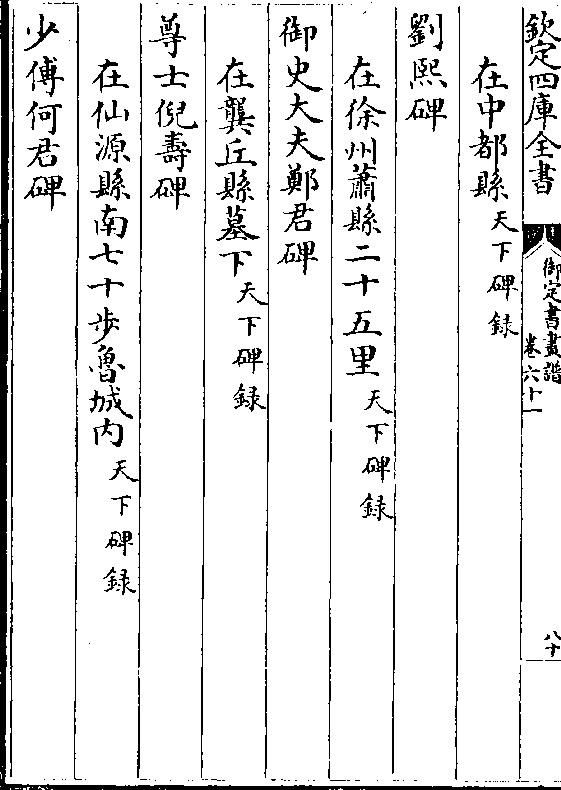 欽定四庫全書
御定書畫譜
卷六十一
八十
在中都縣天下碑錄
劉熙碑
在徐州蕭縣二十五里天下碑錄
御史大夫鄭君碑
在龔丘縣墓下天下碑錄
尊士倪壽碑
在仙源縣南七十步魯城內天下碑錄
少傅何君碑